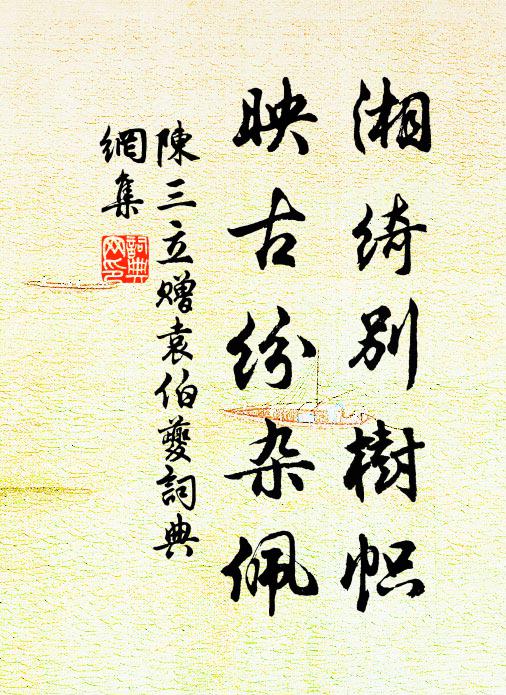 湘绮別樹帜
映古纷杂佩
陳三立赠袁伯夔詞典
網集
詞典
网印